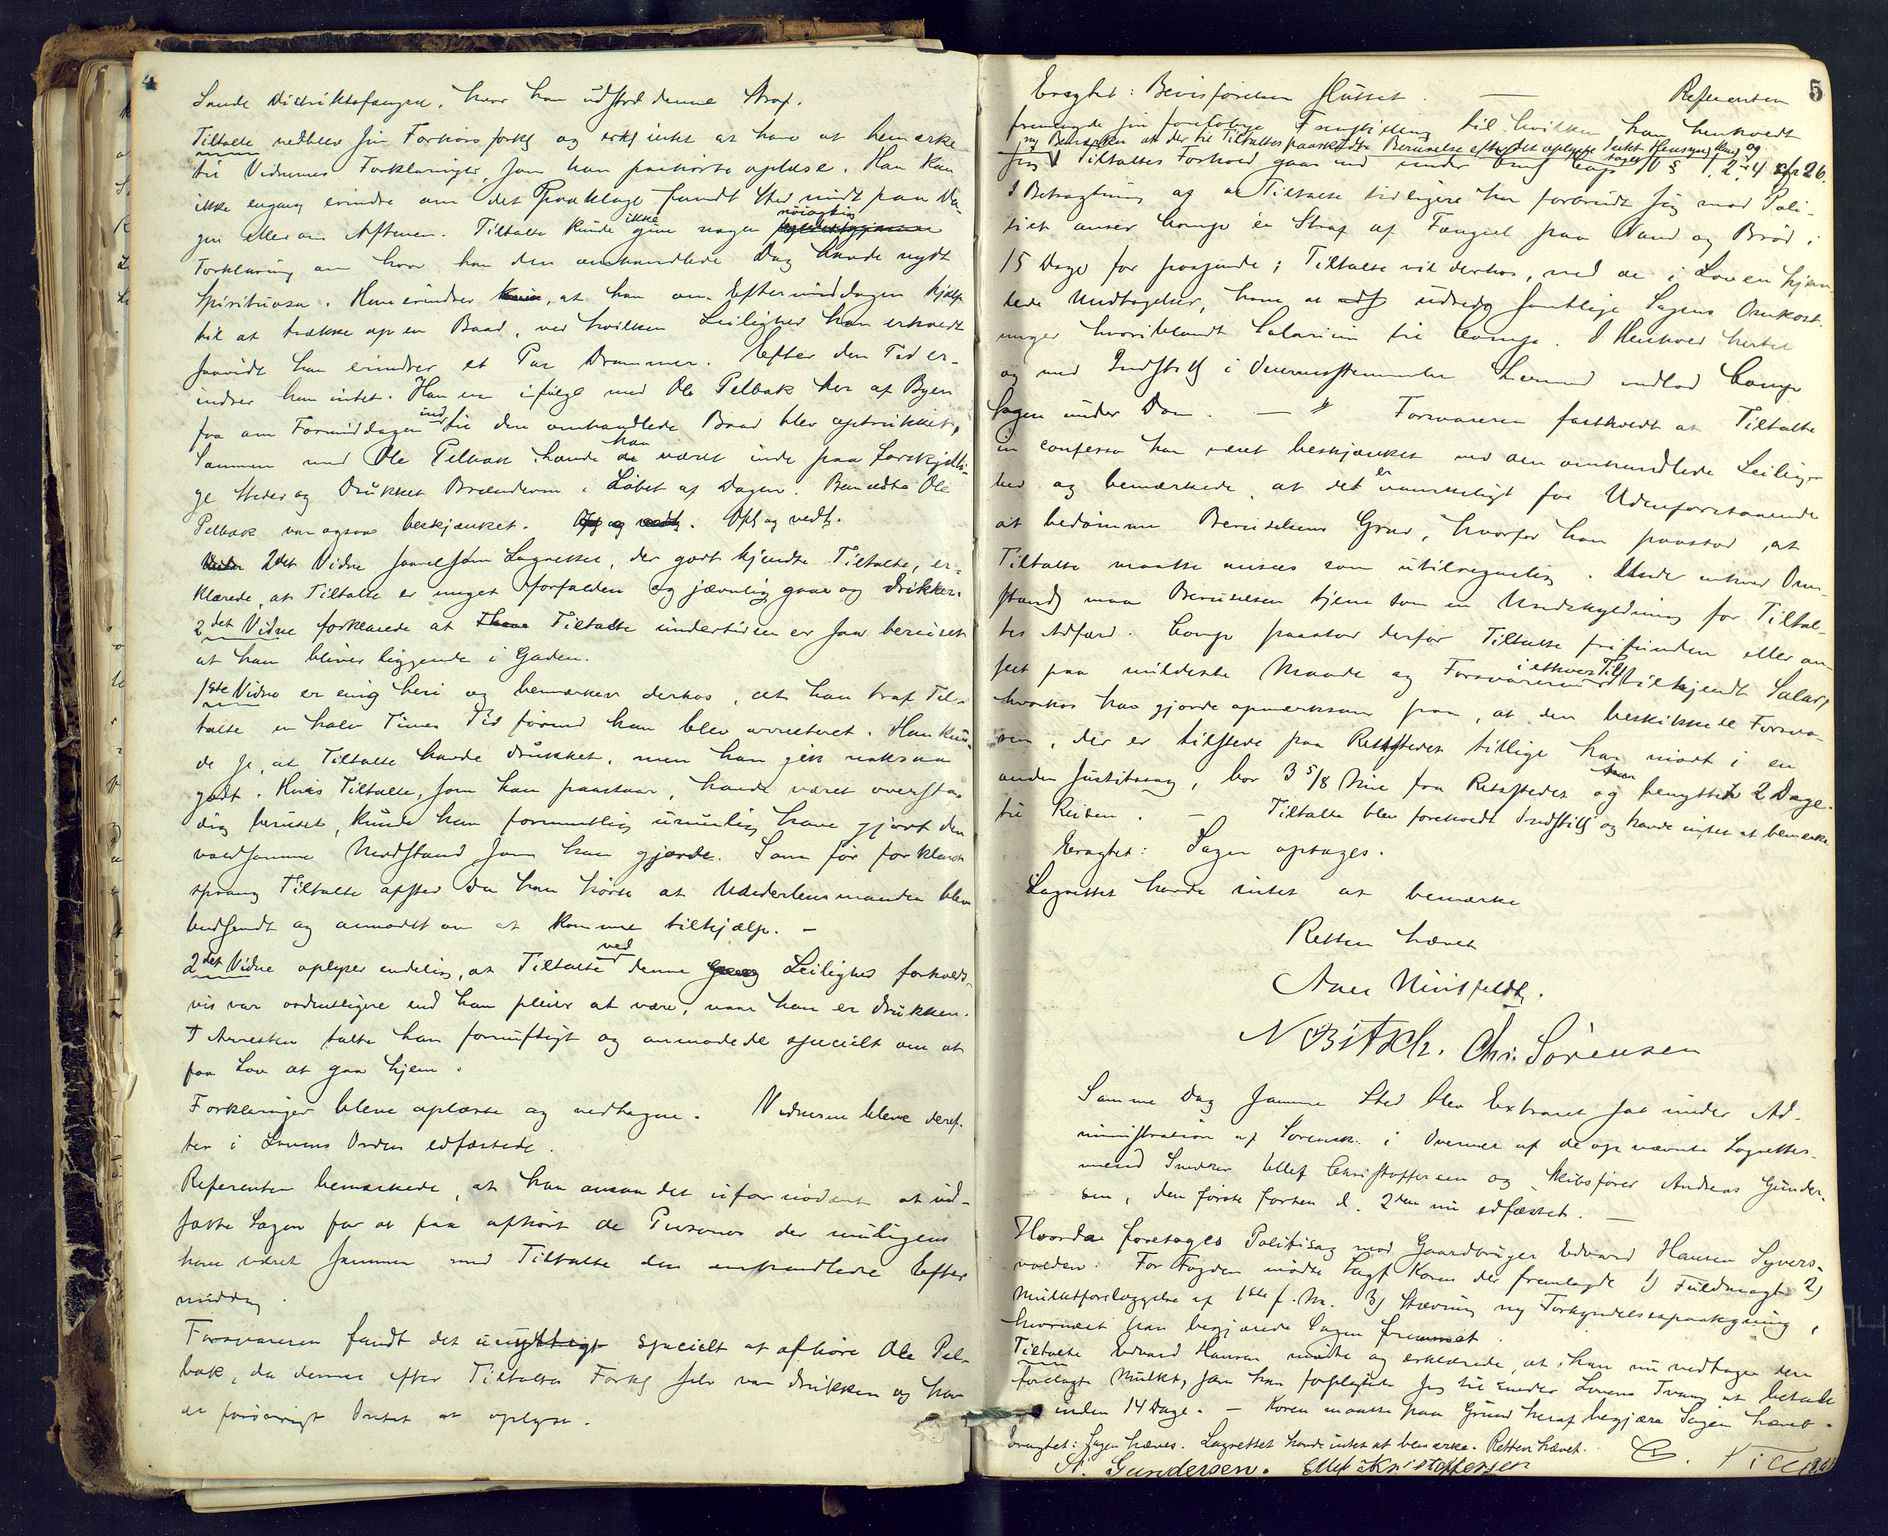 4
Lands Distriktsfængsel, hvor han udstod denne Straf.
Tiltalte vedblev sin Forhørsforkl og erkl intet at have at bemærke
til Vidnernes Forklaringer, som han paahørte oplæse. Han kan
ikke engang erindre om det Paaklagede fandt Sted midt paa Da-
gen eller om Aftenen. Tiltalte kunde ikke give nogen nøiagtig
Forklaring om hvor han den omhandlede Dag havde nydt
Spirituosa. Han erindrer, at han om Eftermiddagen hjalp
til at trække op en Baad, ved hvilken Leilighed han erholdt
saavidt han erindrer et Par Drammer. Efter den Tid er-
indrer han intet. Han var ifølge med Ole Pelbak her af Byen
fra om Formiddagen indtil den omhandlede Baad blev optrukket,
Sammen med Ole Pelbak havde han været inde paa forskjelli-
ge Steder og drukket Brændevin i Løbet af Dagen. Bemeldte Ole
Pelbak var ogsaa beskjænket. Opl og vedt. Opl og vedt.
2det Vidne saavelsom Lagrettet, der godt kjendte Tiltalte, er-
klærede, at Tiltalte er meget forfalden og jævnlig gaar og drikker.
2det Vidne forklarede at Tiltalte undertiden er saa beruset
at han bliver liggende i Gaden.
1ste Vidne er enig heri og bemærker derhos, at han traf Til-
talte en halv Times Tid førend han blev arresteret. Han kun-
de se, at Tiltalte havde drukket, men han gik noksaa
godt. Hvis Tiltalte, som han paastaar, havde været overstadig
beruset, kunde han formentlig umulig have gjort den
voldsomme Modstand som han gjorde. Som før forklaret
sprang Tiltalte afsted da han hørte at Underlensmanden blev
budsendt og anmodet om at komme tilhjælp. —
2det Vidne oplyser endelig, at Tiltalte ved denne Leilighed forholds-
vis var ordentligere end han pleier at være, naar han er drukken.
I Arresten talte han fornuftigt og anmodede specielt om at
faa Lov at gaa hjem.
Forklaringer bleve oplæste og vedtagne. Vidnerne bleve deref-
ter i Lovens Orden edfæstede.
Referenten bemærkede, at han ansaa det ufornødent at ud-
sætte Sagen for at faa afhørt de Personer der muligens
have været sammen med Tiltalte den omhandlede Efter
middag.
Forsvareren fandt det unyttigt specielt at afhøre Ole Pel-
bak, da denne efter Tiltaltes Forkl selv var drukken og har
da forøvrigt Intet at oplyse.
5
Eragtet: Bevisførelsen sluttet. — Referenten
fremlagde sin foreløbige Fremstilling til hvilken han henholdt
sig. Bemærker at der til Tiltaltes paaskudte Beruselse efter det oplyste intet Hensyn kan tages og
Tiltaltes Forhold gaar ind under Crml Cap 10 § 1, 2, 4 cfr 26.
I Betragtning af at Tiltalte tidligere har forbrudt sig mod Poli-
tiet anser Comp en Straf af Fængsel paa Vand og Brød i
15 Dage for passende; Tiltalte vil derhos, med de i Loven hjem-
lede Undtagelser, have at udrede samtlige Sagens Omkost-
ninger hvoriblandt Salarium til Comp. I Henhold hertil
og med Indstill i Overensstemmelse hermed indlod Comp
Sagen under Dom. — Forsvareren fastholdt at Tiltalte
in confesso har været beskjænket ved den omhandlede Leilig-
hed og bemærkede, at det er vanskeligt for Udenforstaaende
at bedømme Beruselsens Grad, hvorfor han paastod, at
Tiltalte maatte ansees som utilregnelig. Under enhver Om-
stænd maa Beruselsen tjene som en Undskyldning for Tiltal-
tes Adfærd. Comp paastod derfor Tiltalte frifunden eller an-
seet paa mildeste Maade og Forsvareren i ethvert Tilf tilkjendt Salar,
hvorhos han gjorde opmærksom paa, at den beskikkede Forsva-
rer, der er tilstede paa Retsstedet tillige har mødt i en
anden Justitssag, bor 3 5/8 Mil fra Retsstedet og har benyttet 2 Dage
til Reisen. — Tiltalte blev foreholdt Indstill og havde intet at bemærke.
Eragtet: Sagen optages.
Lagrettet havde intet at bemærke
Retten hævet
N Bitsch. Chr. Sørensen
Samme Dag samme Sted blev Extraret sat under Ad-
ministration af Sorensk. i Overvær af de opnævnte Lagrettes-
mænd Snedker Ellef Christoffersen og Skibsfører Andreas Gunder-
sen, den første forhen d. 2den nu edfæstet. —
Hvorda foretoges Politisag mod Gaardbruger Edvard Hansen Syvers-
volden: For Fogden mødte Sagf Koren der fremlagde 1) Fuldmagt 2)
Mulktforelæggelse af 1ste f. M. 3) Stævning og Forkyndelsespaategning,
hvornæst han begjærede Sagen fremmet.
Tiltalte Edvard Hansen mødte og erklærede, at han nu vedtager den
forelagte Mulkt, som han forpligtede sig til under Lovens Tvang at betale
inden 14 Dage. — Koren maatte paa Grund heraf begjære Sagen hævet.
Eragtet: Sagen hæves. Lagrettet havde intet at bemærke. Retten hævet.
A. Gundersen. Ellef Kristoffersen